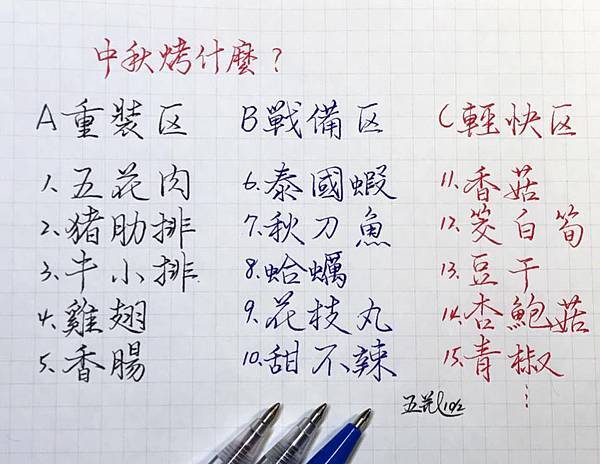 中秋烤什麼？
A 重裝区
1. 五花肉
2. 猪肋排
3. 牛小排
4. 雞翅
5. 香腸
B 戰備区
6. 泰國蝦
7. 秋刀魚
8. 蛤蠣
9. 花枝丸
10. 甜不辣
C 輕快区
11. 香菇
12. 茭白筍
13. 豆干
14. 杏鮑菇
15. 青椒
⋮
五花 10/2